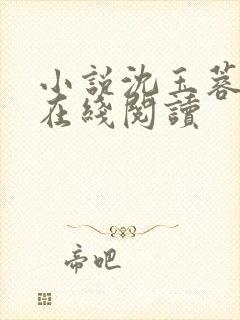 小説沈玉蓉
在綫閱讀
帝吧